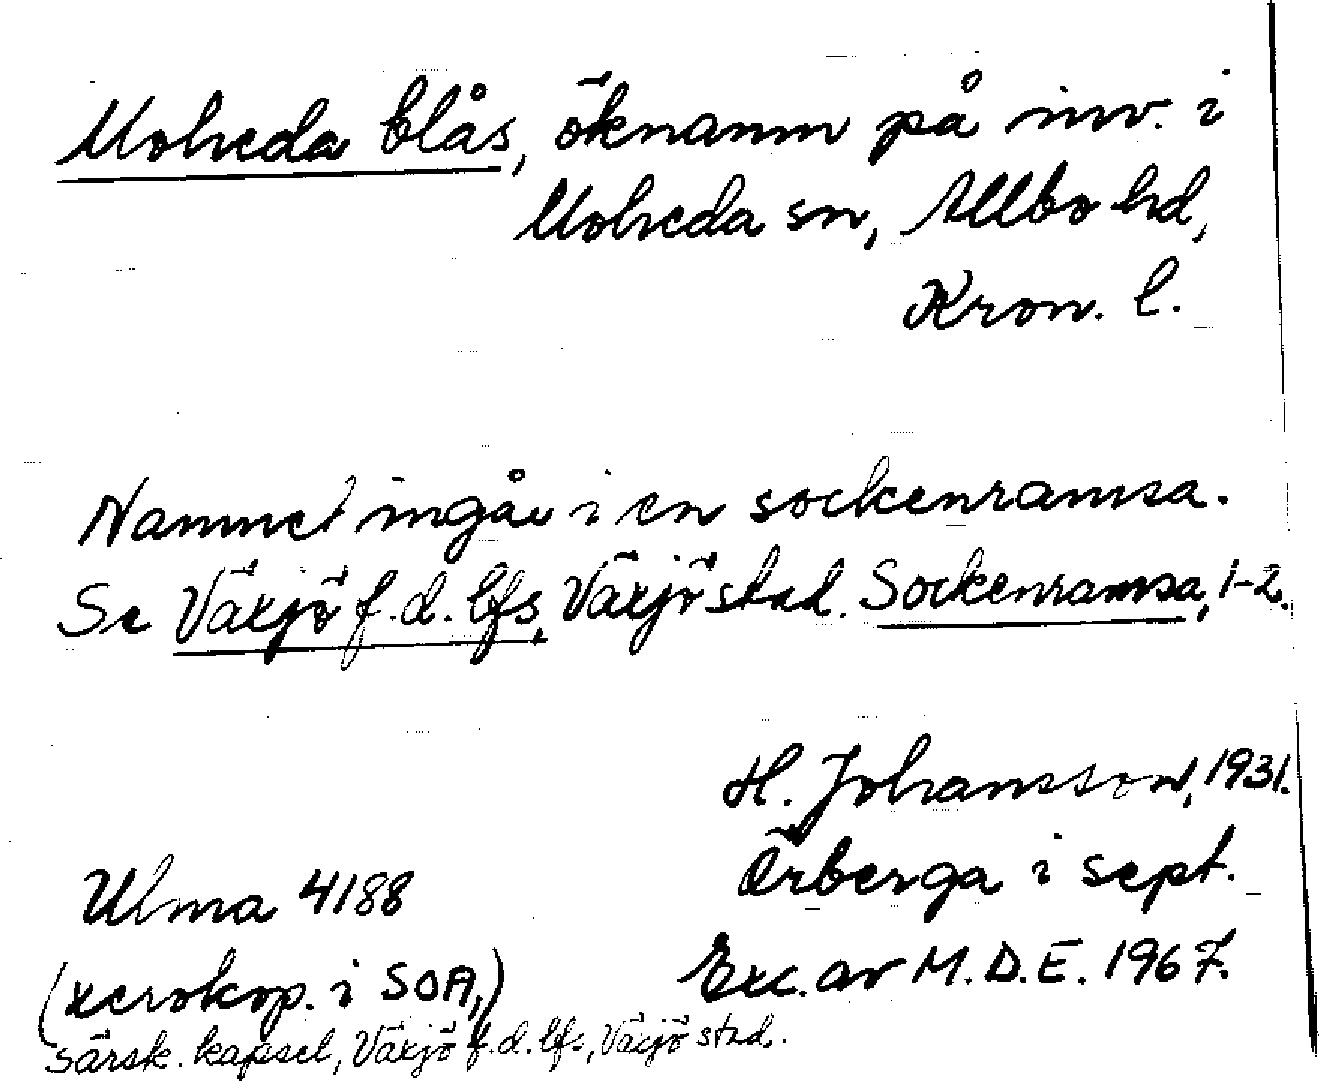 Moheda blås, öknamn på inv. i
Moheda sn, Allbo hd,
Kron. l.
Namnet ingår i en sockenramsa.
Se Växjö f.d. lfs, Växjö stad. Sockenramsa, 1-2.
H. Johansson, 1931.
Örberga i sept.
Ulma 4188
Exc. av M.D.E. 1967.
(xerokop. i SOA,)
särsk. kapsel, Växjö f.d. lfs, Växjö stad.